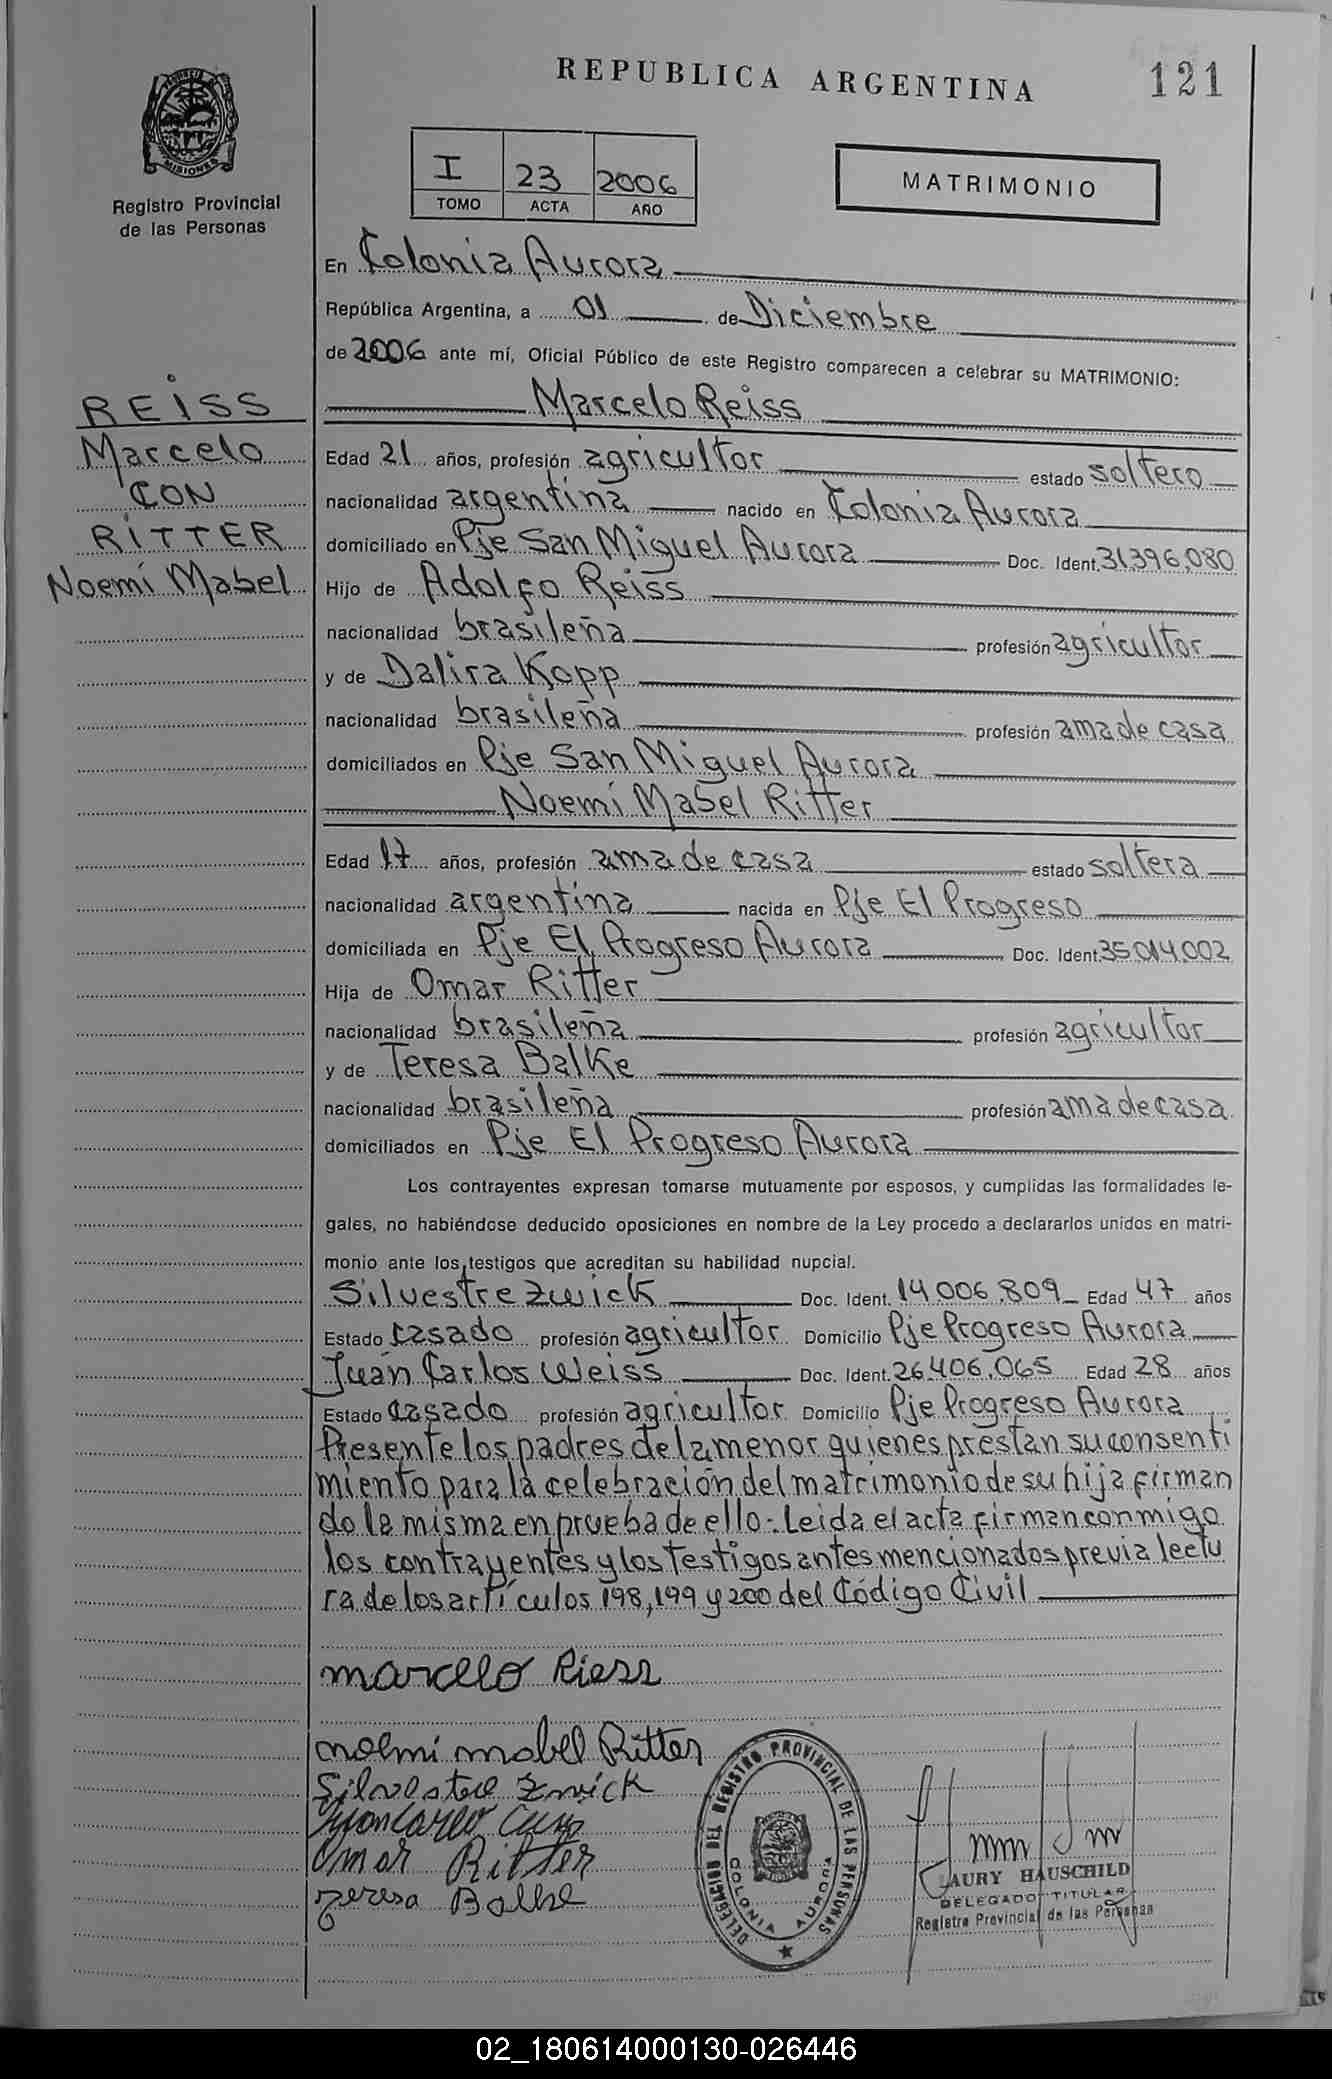 REPUBLICA ARGENTINA
121
PROVINCIA DE MISIONES
Registro Provincial
de las Personas
I 23 2006
TOMO ACTA AÑO
MATRIMONIO
REISS
Marcelo
CON
RITTER
Noemí Mabel
En Colonia Aurora
República Argentina, a 01 de Diciembre
de 2006 ante mí, Oficial Público de este Registro comparecen a celebrar su MATRIMONIO:
Marcelo Reiss
Edad 21 años, profesión agricultor estado soltero
nacionalidad argentina nacido en Colonia Aurora
domiciliado en Pje San Miguel Aurora Doc. Ident. 31,396,080
Hijo de Adolfo Reiss
nacionalidad brasileña profesión agricultor
y de Dalira Kopp
nacionalidad brasileña profesión ama de casa
domiciliados en Pje San Miguel Aurora
Noemí Mabel Ritter
Edad 17 años, profesión ama de casa estado soltera
nacionalidad argentina nacida en Pje El Progreso
domiciliada en Pje El Progreso Aurora Doc. Ident. 35.014.002
Hija de Omar Ritter
nacionalidad brasileña profesión agricultor
y de Teresa Balke
nacionalidad brasileña profesión ama de casa
domiciliados en Pje El Progreso Aurora
Los contrayentes expresan tomarse mutuamente por esposos, y cumplidas las formalidades le-
gales, no habiéndose deducido oposiciones en nombre de la Ley procedo a declararlos unidos en matri-
monio ante los testigos que acreditan su habilidad nupcial.
Silvestre Zwick Doc. Ident. 14.006.809 Edad 47 años
Estado casado profesión agricultor Domicilio Pje Progreso Aurora
Juan Carlos Weiss Doc. Ident. 26.406.065 Edad 28 años
Estado casado profesión agricultor Domicilio Pje Progreso Aurora
Presente los padres de la menor quienes prestan su consenti
miento para la celebración del matrimonio de su hija firman
do la misma en prueba de ello.- Leida el acta firman conmigo
los contrayentes y los testigos antes mencionados previa lectu
ra de los artículos 198, 199 y 200 del Código Civil
marcelo Riess
noemi mabel Ritter
Silvestre Zwick
Omar Ritter
Teresa Balke
DELEGACION DEL REGISTRO PROVINCIAL DE LAS PERSONAS
COLONIA AURORA
LAURY HAUSCHILD
DELEGADO TITULAR
Registro Provincial de las Personas
02_180614000130-026446